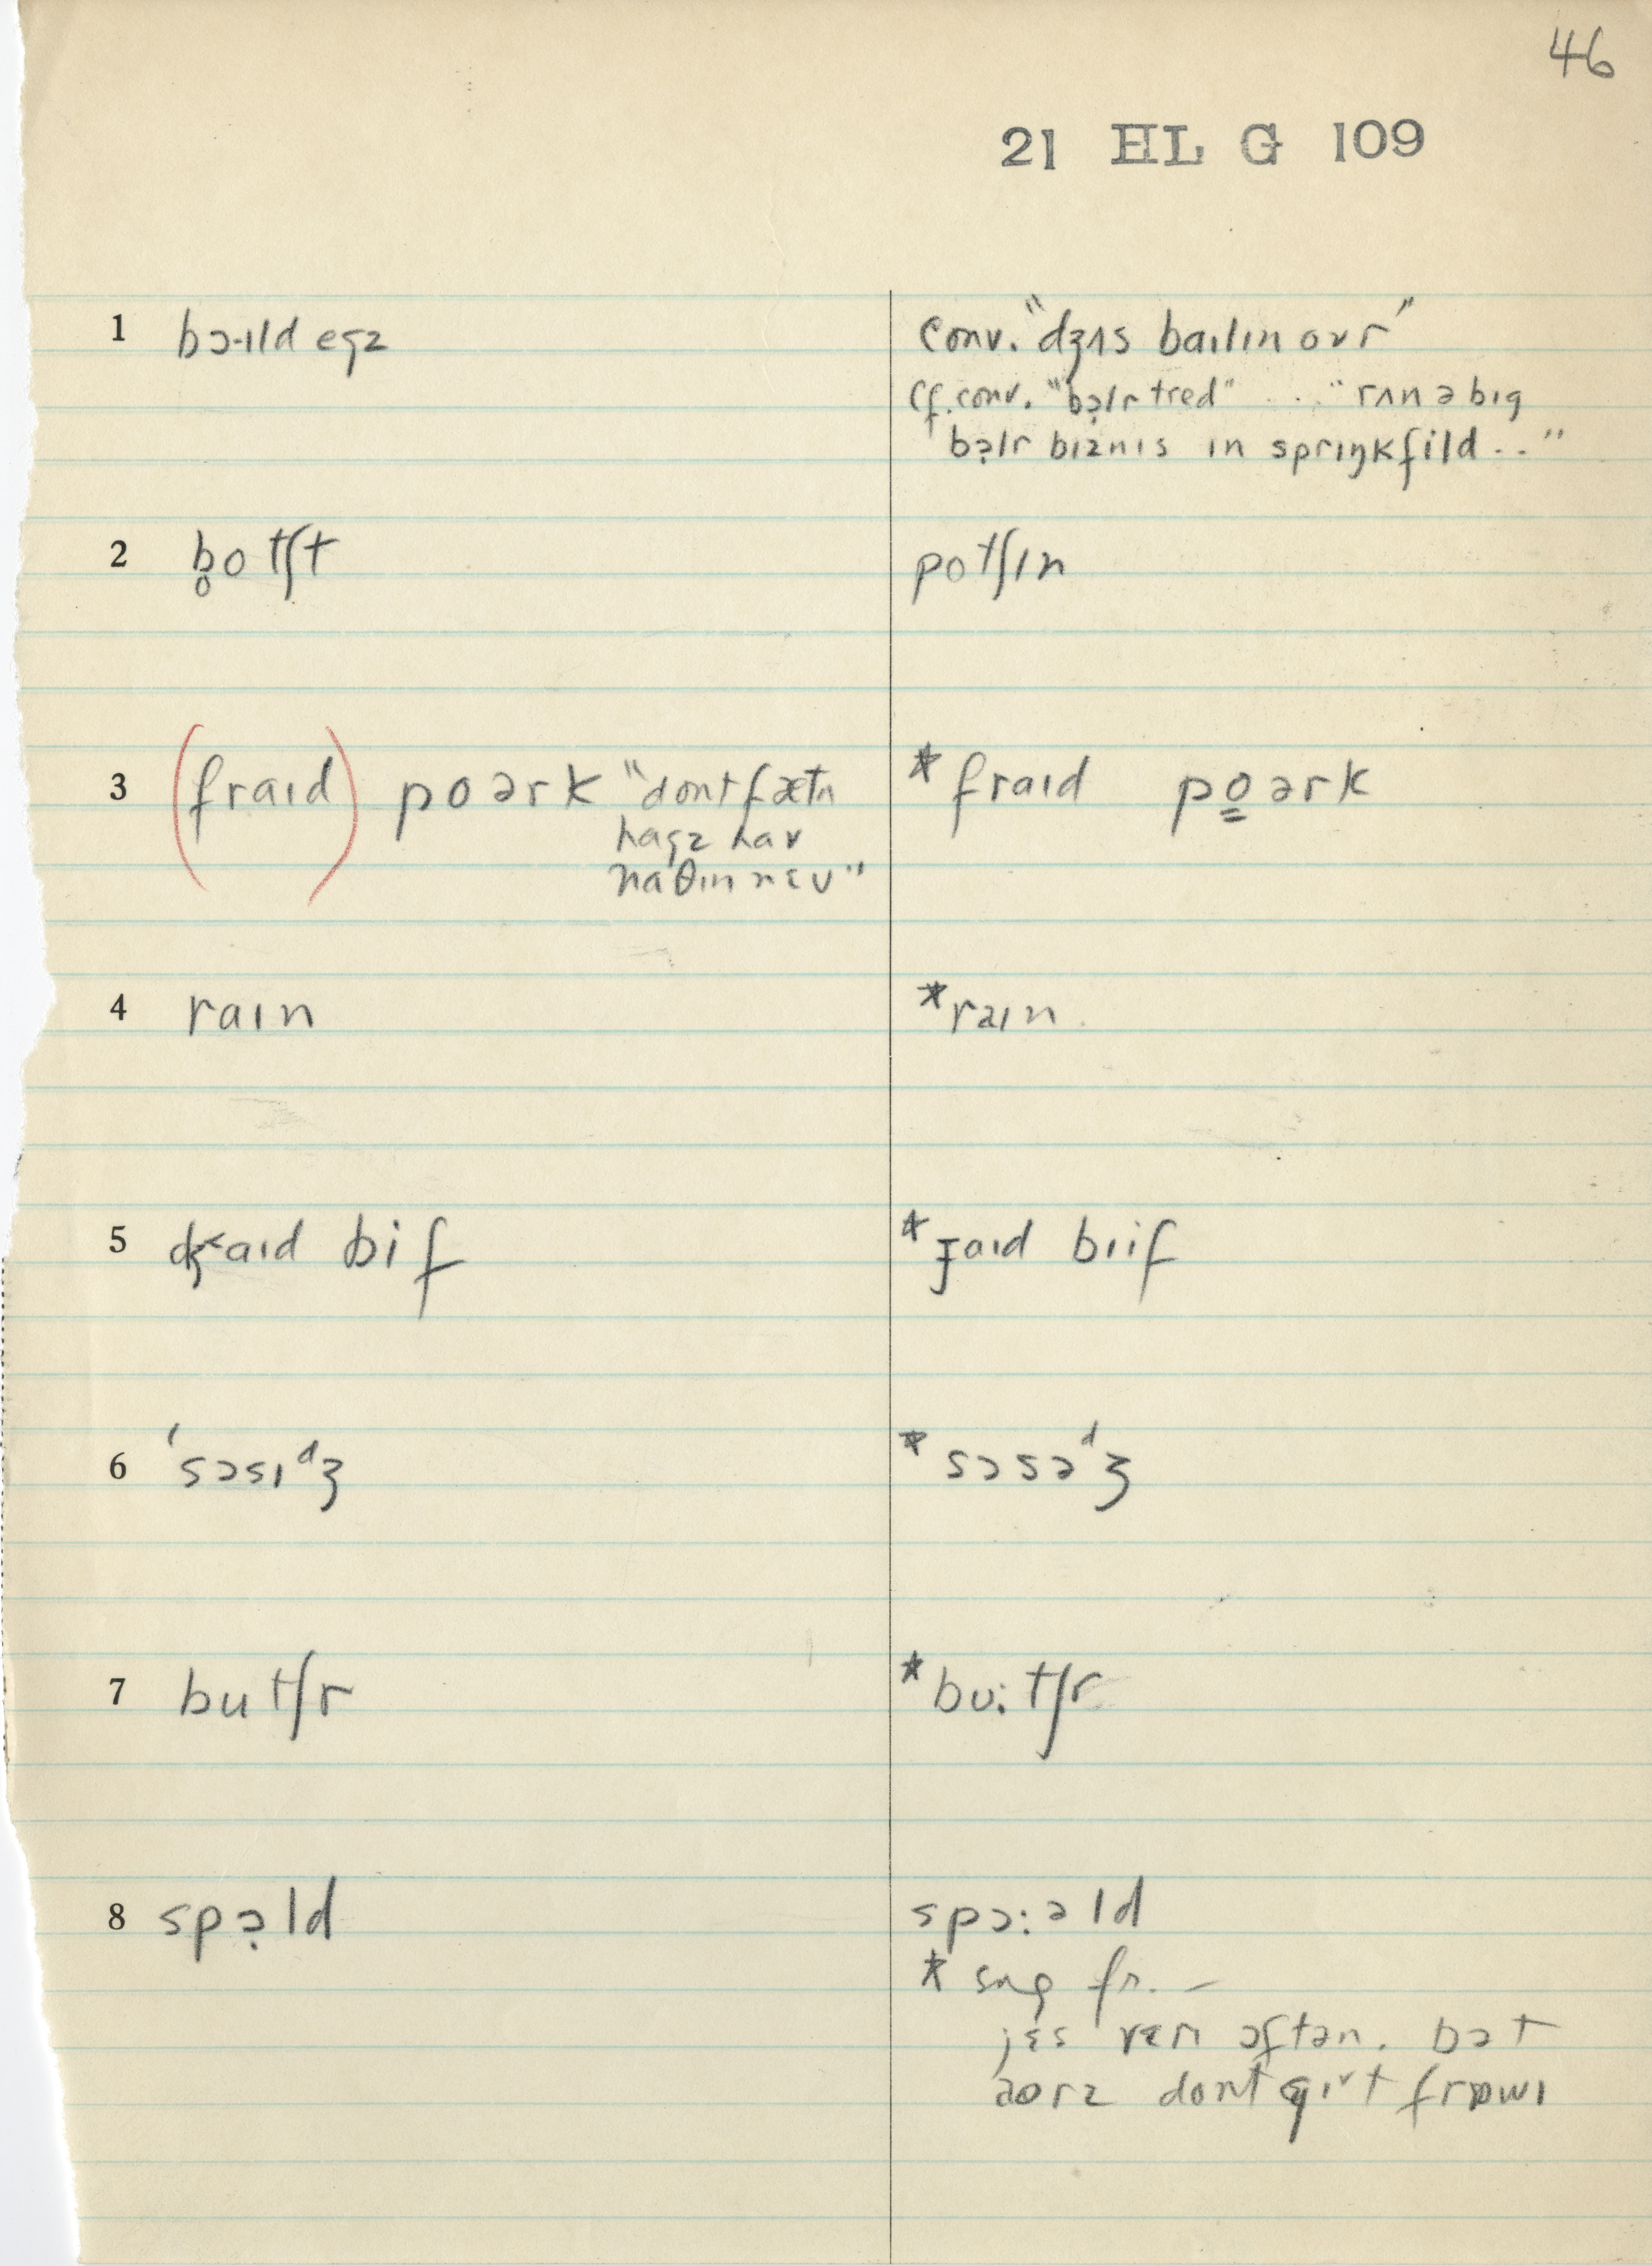 46
21 HL G 109
1 bɔ-ɪld egz
conv. "dʒʌs baɪlɪn ovr"
cf. conv. "bɔ̣lr tred" ... "rʌn ə bɪg
bɔ̣lr bɪznɪs ɪn sprɪŋkfild .."
2 b̥otʃt
potʃɪn
3 (fraɪd) poərk "dont fætn
hagz hav
naθɪn
* fraɪd po̳ərk
4 raɪn
* raɪn
5 dʒ˂aɪd bif
* ɟaɪd bɪif
6 ˈsɔsɪᵈʒ
* sɔsəᵈʒ
7 butʃr
* bʊ:tʃr
8 spɔ̣ld
spɔ:əld
* sug fr. –
jɛs vɛrɪ ɔftən. bət
aʊrz dont